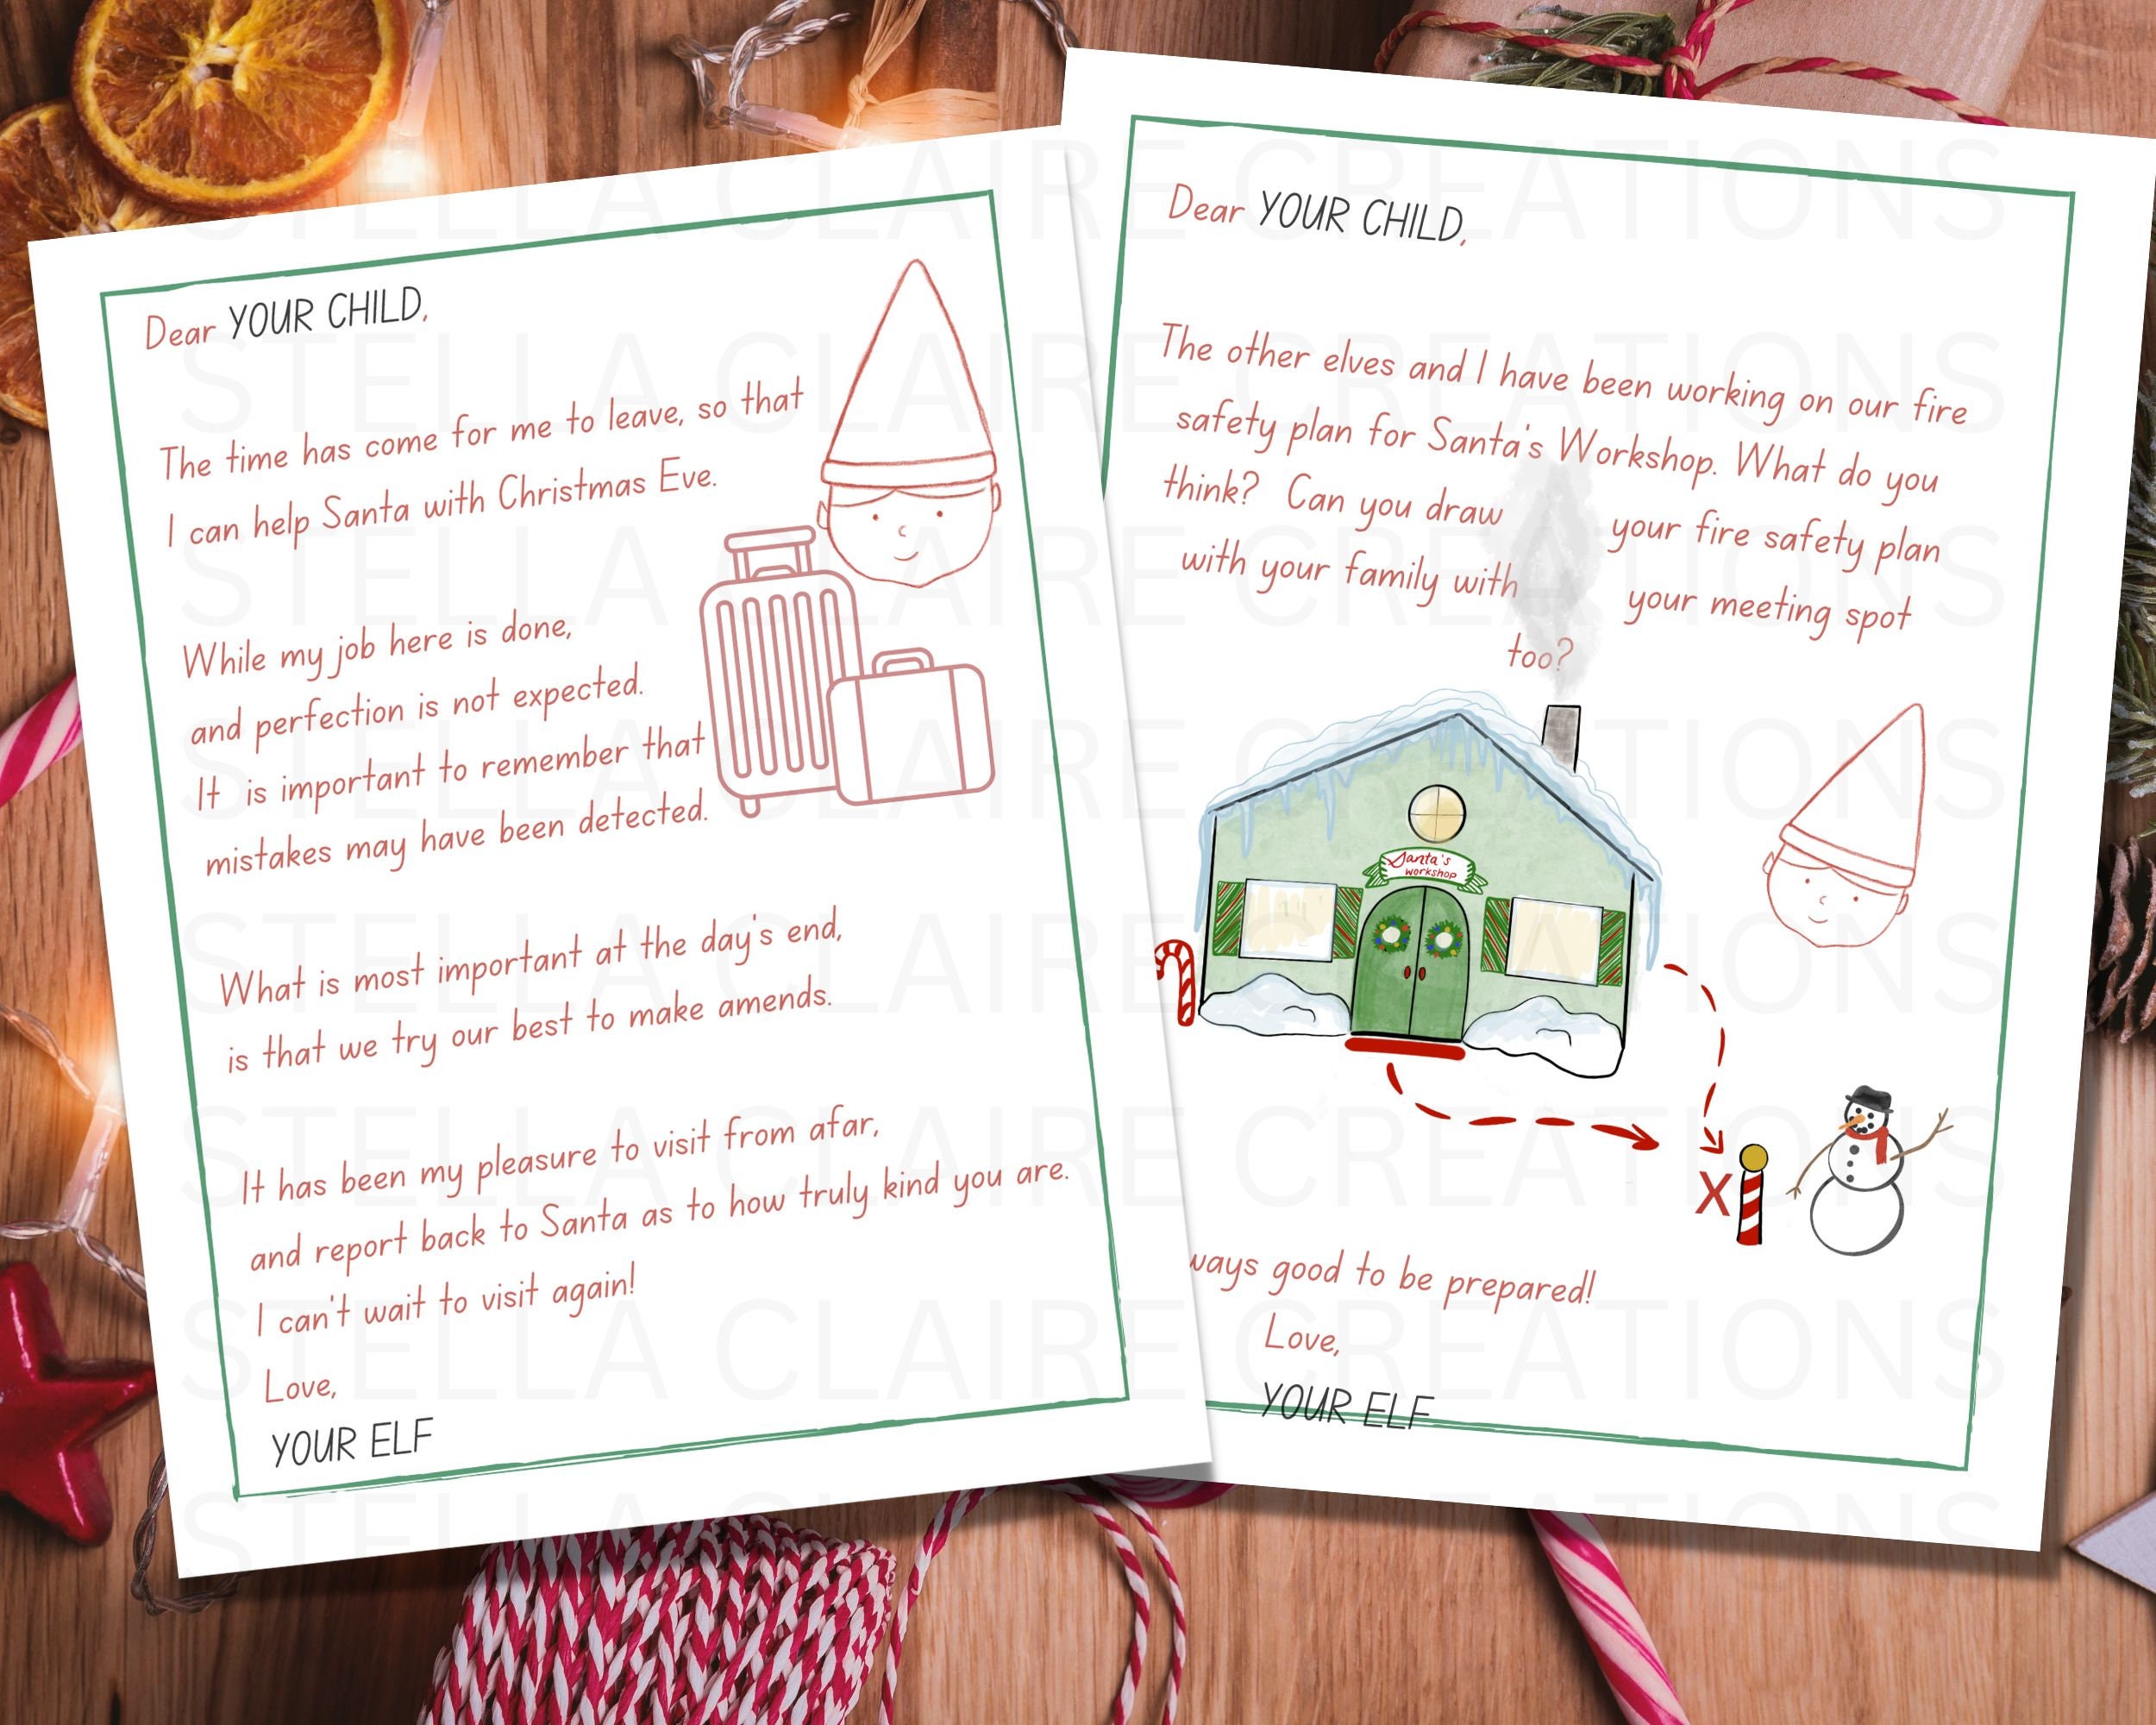 Dear YOUR CHILD,
The time has come for me to leave, so that
I can help Santa with Christmas Eve.
While my job here is done,
and perfection is not expected.
It is important to remember that
mistakes may have been detected.
What is most important at the day's end,
is that we try our best to make amends.
It has been my pleasure to visit from afar,
and report back to Santa as to how truly kind you are.
I can't wait to visit again!
Love,
YOUR ELF
Dear YOUR CHILD,
The other elves and I have been working on our fire
safety plan for Santa's Workshop. What do you
think? Can you draw your fire safety plan
with your family with your meeting spot
too?
Santa's
workshop
X
ways good to be prepared!
Love,
YOUR ELF
STELLA CLAIRE CREATIONS
STELLA CLAIRE CREATIONS
STELLA CLAIRE CREATIONS
STELLA CLAIRE CREATIONS
STELLA CLAIRE CREATIONS
STELLA CLAIRE CREATIONS
STELLA CLAIRE CREATIONS
STELLA CLAIRE CREATIONS